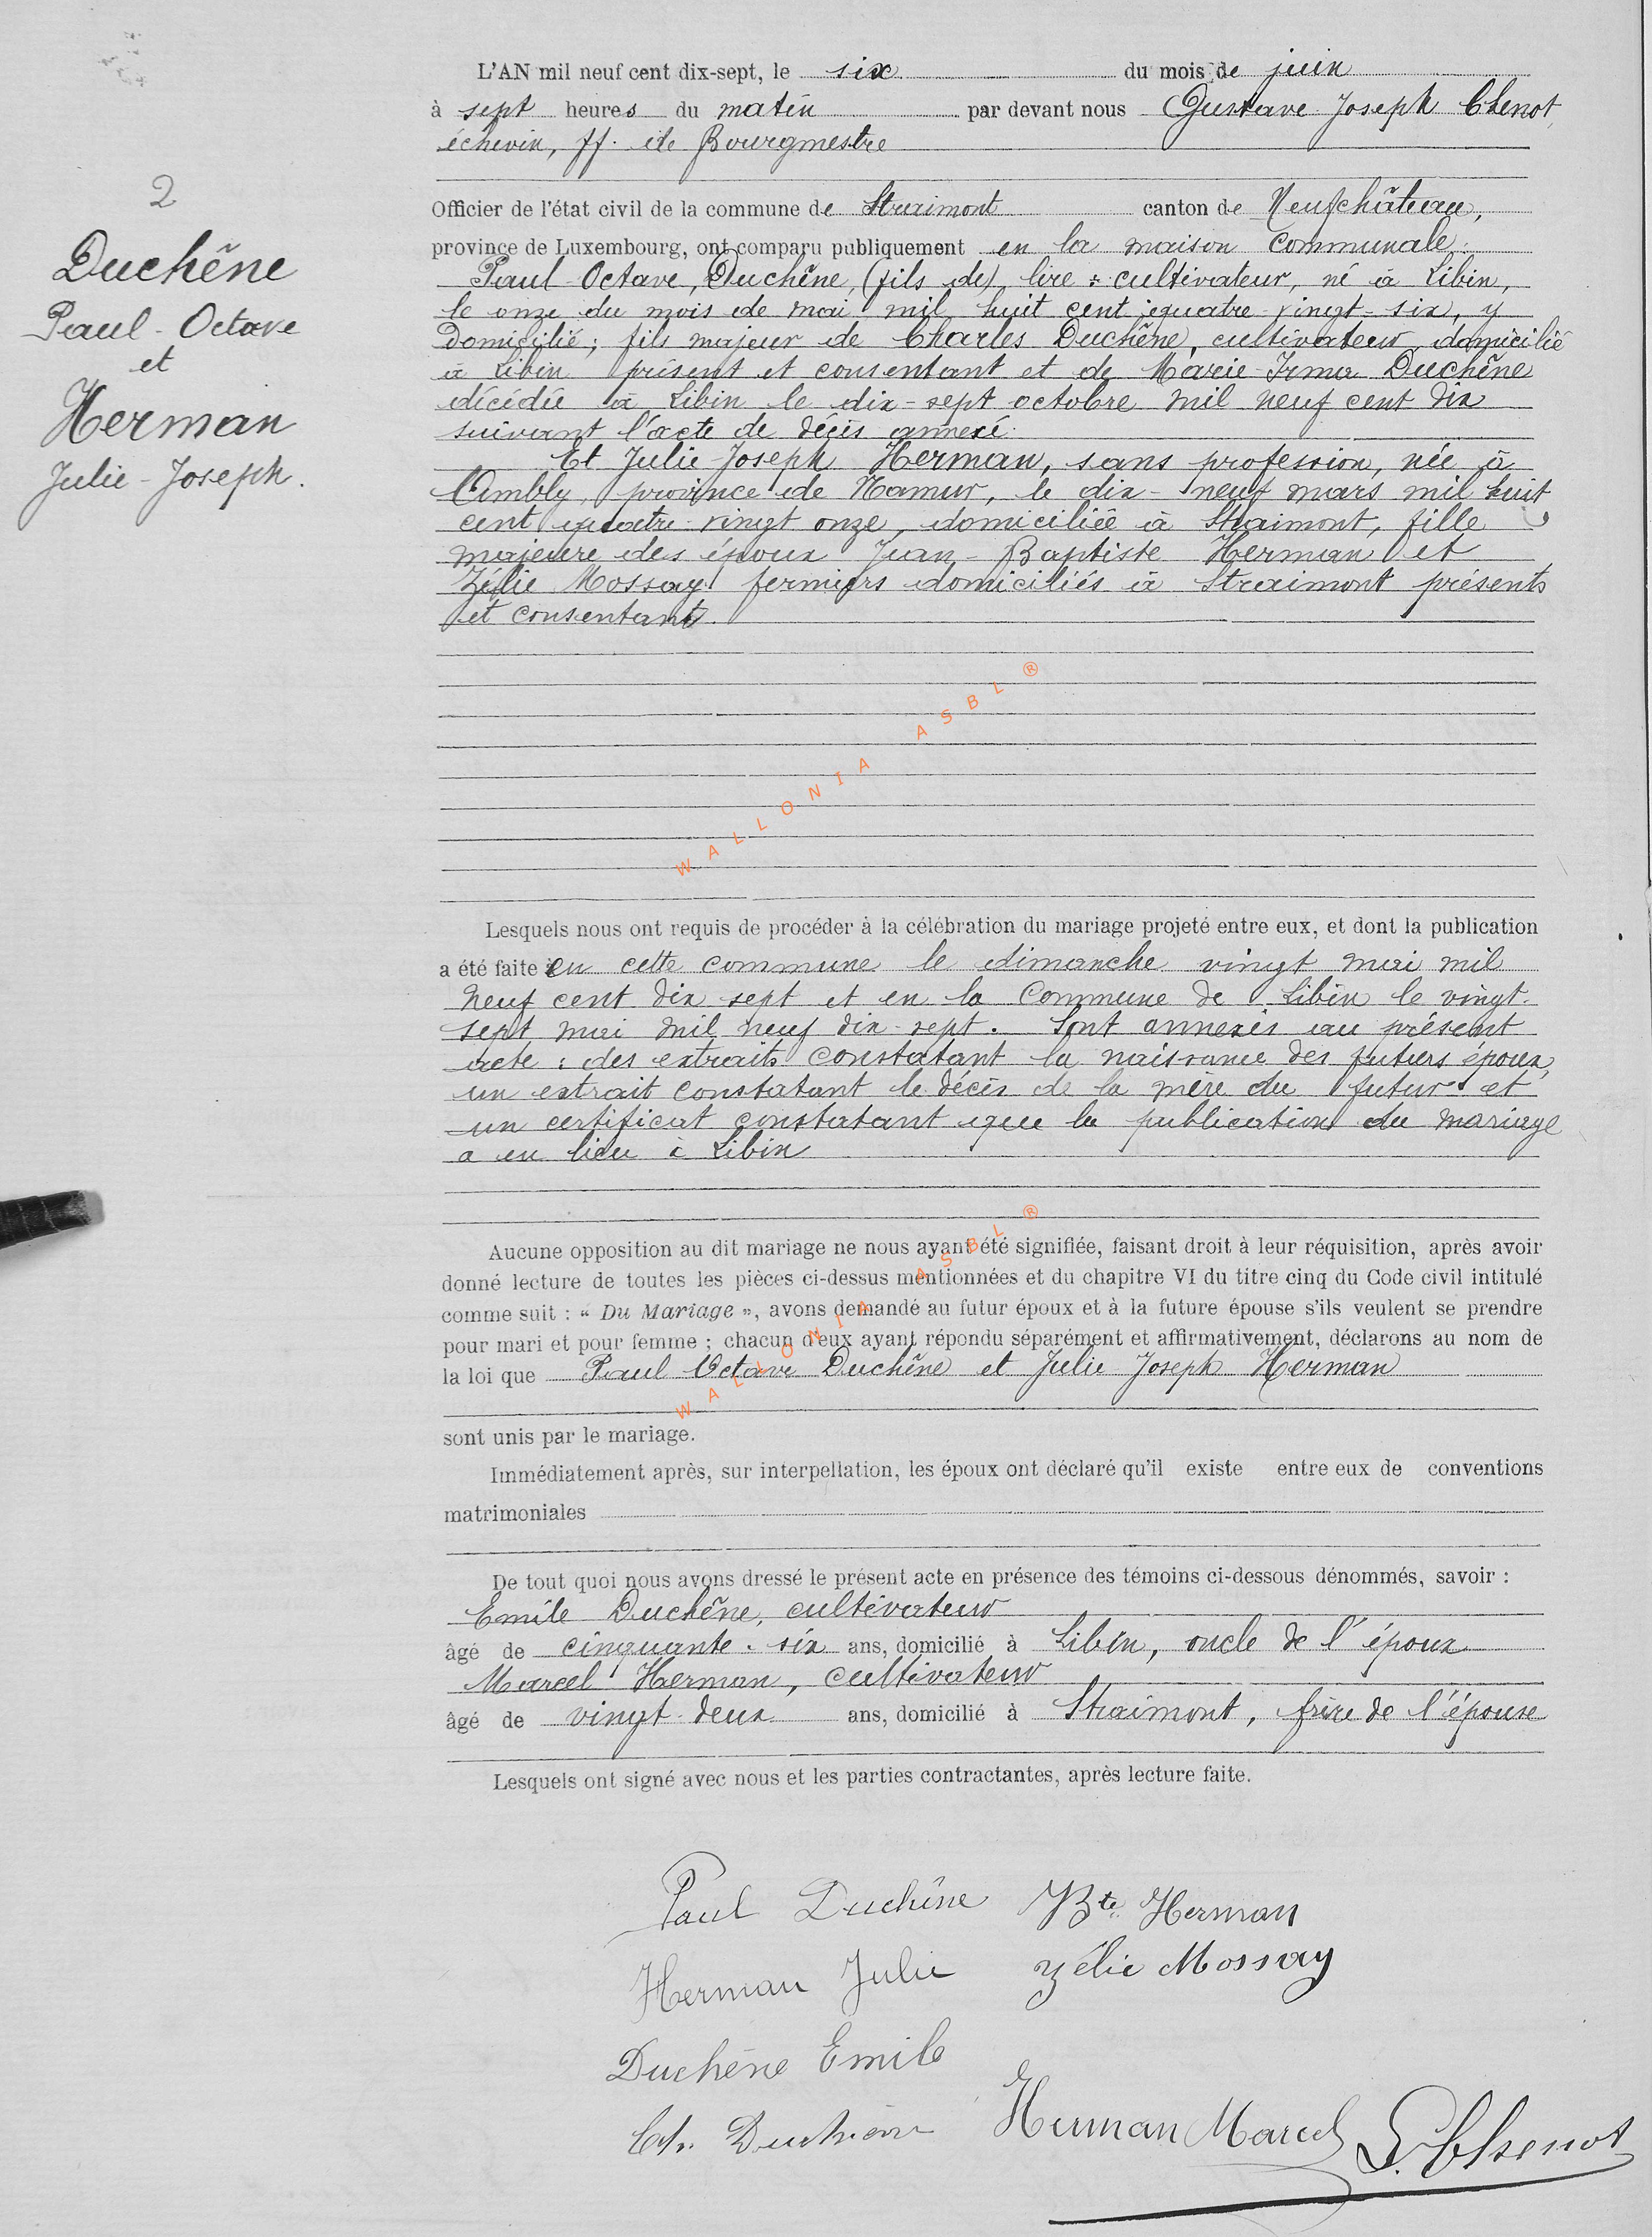 2
Duchêne
Paul-Octave
et
Herman
Julie-Joseph.
L'AN mil neuf cent dix-sept, le six du mois de juin
à sept heures du matin par devant nous Gustave Joseph Chenot,
échevin, ff. de Bourgmestre
Officier de l'état civil de la commune de Straimont canton de Neufchâteau,
province de Luxembourg, ont comparu publiquement en la maison Communale
Paul-Octave, Duchêne, (fils de) lire : cultivateur, né à Libin,
le onze du mois de mai mil huit cent quatre-vingt-six, y
domicilié ; fils majeur de Charles Duchêne, cultivateur domicilié
à Libin présent et consentant et de Marie-Irma Duchêne
décédée à Libin le dix-sept octobre mil neuf cent dix
suivant l'acte de décès annexé.
Et Julie-Joseph Herman, sans profession, née à
Ambly, province de Namur, le dix-neuf mars mil huit
cent quatre-vingt onze, domiciliée à Straimont, fille
majeure des époux Jean-Baptiste Herman et
Zélie Mossay fermiers domiciliés à Straimont présents
et consentants.
WALLONIA ASBL ®
Lesquels nous ont requis de procéder à la célébration du mariage projeté entre eux, et dont la publication
a été faite en cette commune le dimanche vingt mai mil
neuf cent dix sept et en la Commune de Libin le vingt-
sept mai mil neuf dix-sept. Sont annexés au présent
acte : des extraits constatant la naissance des futurs époux,
un extrait constatant le décès de la mère du futur et
un certificat constatant que la publication du mariage
a eu lieu à Libin
Aucune opposition au dit mariage ne nous ayant été signifiée, faisant droit à leur réquisition, après avoir
donné lecture de toutes les pièces ci-dessus mentionnées et du chapitre VI du titre cinq du Code civil intitulé
comme suit : « Du Mariage », avons demandé au futur époux et à la future épouse s'ils veulent se prendre
pour mari et pour femme ; chacun d'eux ayant répondu séparément et affirmativement, déclarons au nom de
la loi que Paul Octave Duchêne et Julie Joseph Herman
WALLONIA ASBL ®
sont unis par le mariage.
Immédiatement après, sur interpellation, les époux ont déclaré qu'il existe entre eux de conventions
matrimoniales
De tout quoi nous avons dressé le présent acte en présence des témoins ci-dessous dénommés, savoir :
Emile Duchêne, cultivateur
âgé de cinquante-six ans, domicilié à Libin, oncle de l'époux
Marcel Herman, cultivateur
âgé de vingt-deux ans, domicilié à Straimont, frère de l'épouse
Lesquels ont signé avec nous et les parties contractantes, après lecture faite.
Paul Duchêne JBte Herman
Herman Julie Zélie Mossay
Duchêne Emile
Ch. Duchêne Herman Marcel G. Chenot